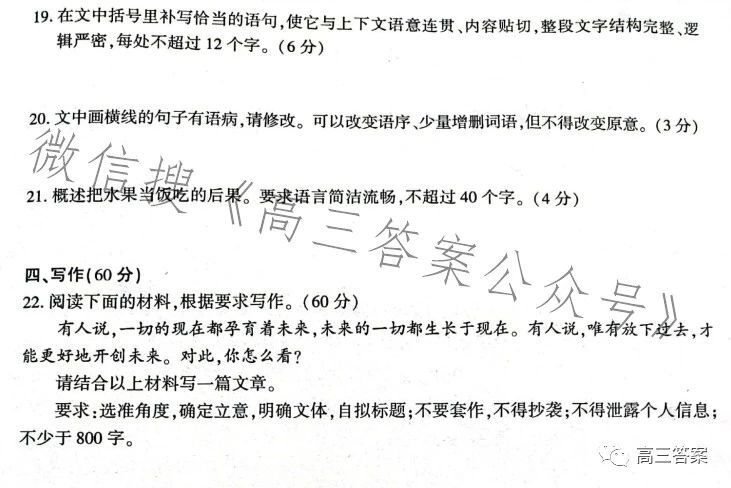 19. 在文中括号里补写恰当的语句,使它与上下文语意连贯、内容贴切,整段文字结构完整、逻
辑严密,每处不超过 12 个字。(6 分)
20. 文中画横线的句子有语病,请修改。可以改变语序、少量增删词语,但不得改变原意。(3 分)
21. 概述把水果当饭吃的后果。要求语言简洁流畅,不超过 40 个字。(4 分)
四、写作(60 分)
22. 阅读下面的材料,根据要求写作。(60 分)
有人说,一切的现在都孕育着未来,未来的一切都生长于现在。有人说,唯有放下过去,才
能更好地开创未来。对此,你怎么看?
请结合以上材料写一篇文章。
要求:选准角度,确定立意,明确文体,自拟标题;不要套作,不得抄袭;不得泄露个人信息;
不少于 800 字。
微信搜《高三答案公众号》
高三答案